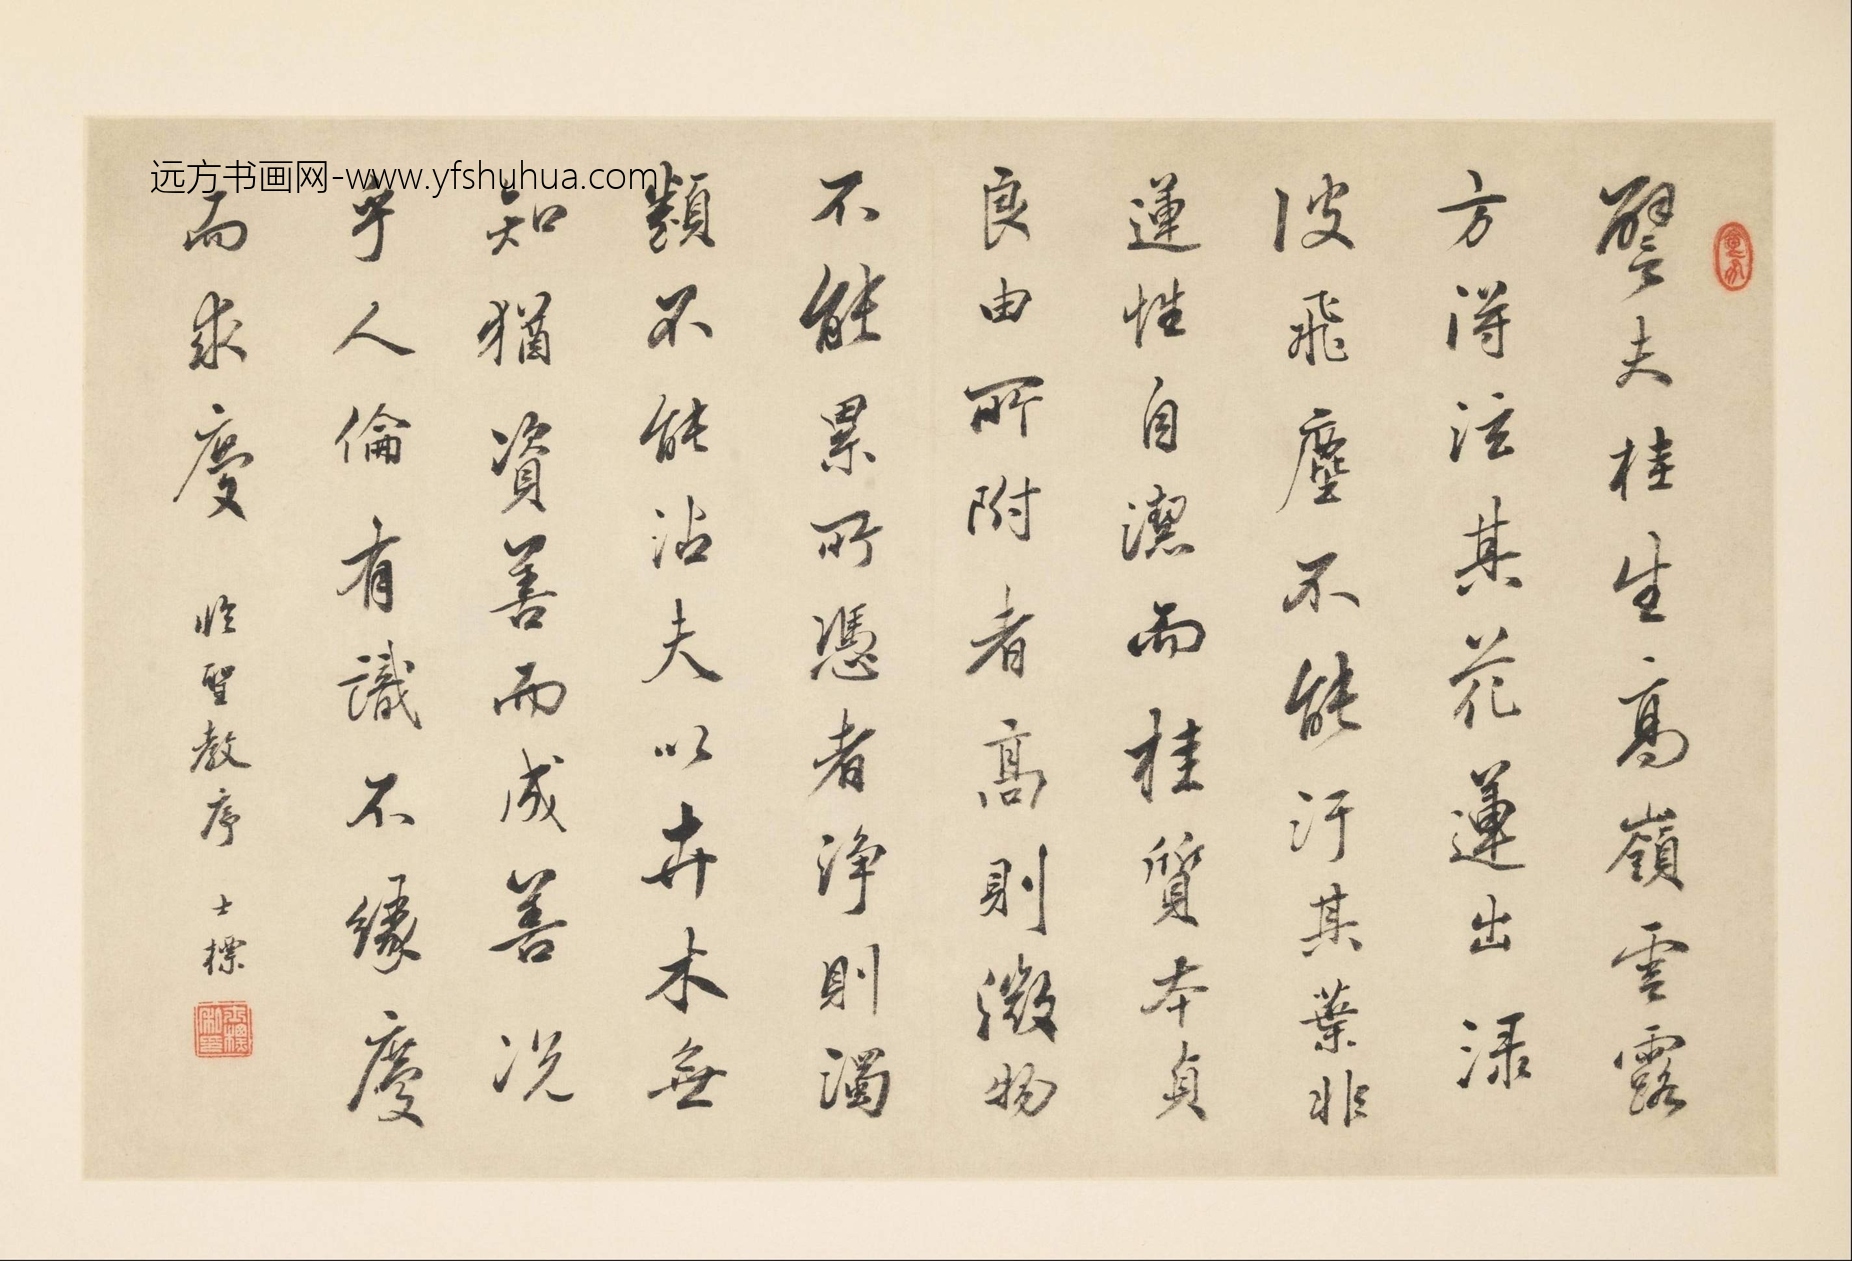 远方书画网-www.yfshuhua.com
譬夫桂生高嶺雲露
方得泫其花蓮出淥
波飛塵不能汙其葉非
蓮性自潔而桂質本貞
良由所附者高則微物
不能累所憑者淨則濁
類不能沾夫以卉木無
知猶資善而成善況
乎人倫有識不緣慶
而求慶
臨聖教序 士標
士標私印